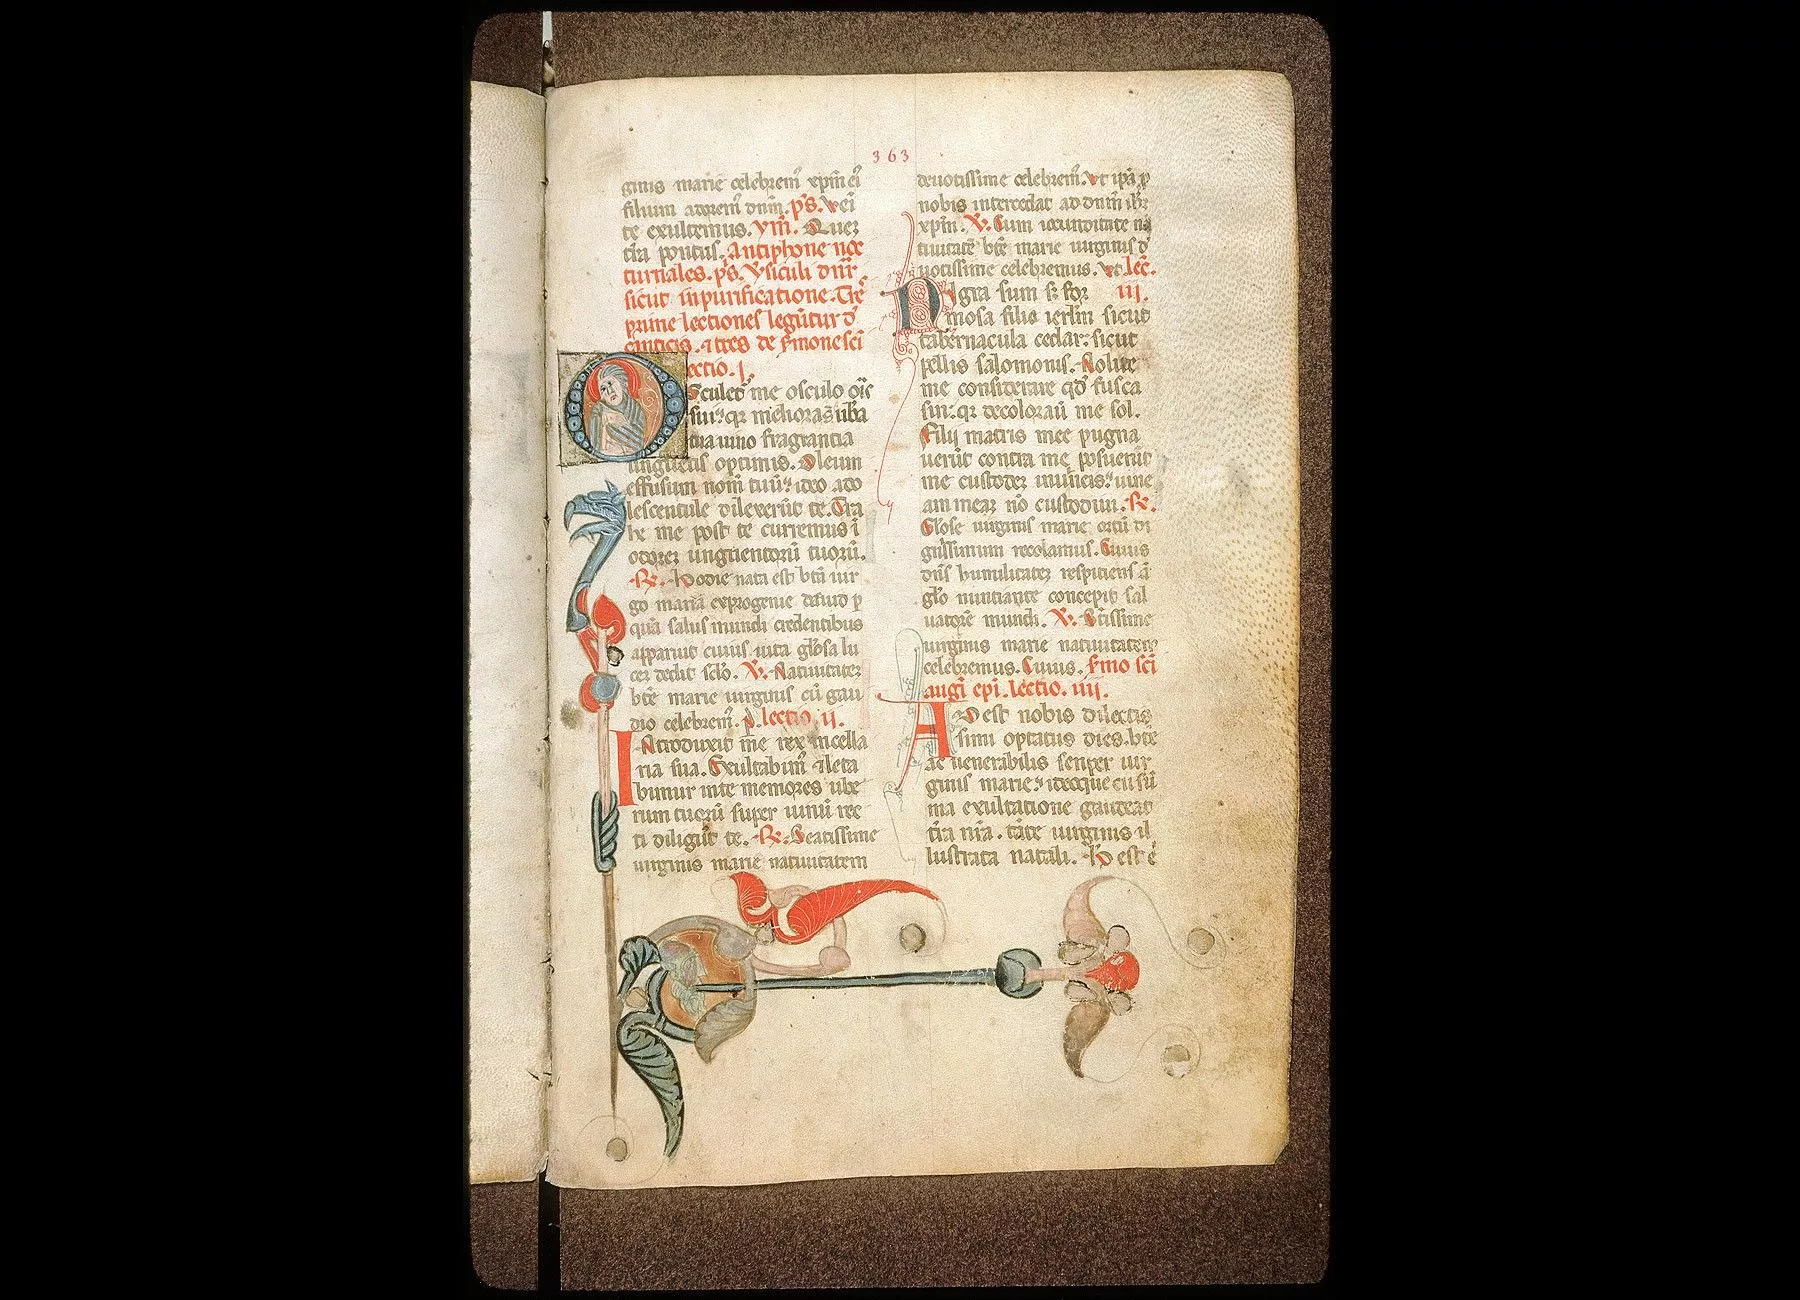 363
ginis marie celebrem̄ xp̄m ei
filium adorem̄ dn̄m. p̄s. vēi
te exultemus. ym̄. Quez
tr̄a pontus. Antiphone noc
turnales. p̄s. v̄siculi dn̄r
sicut in purificatione. Tr̄e
prime lectiones legūtur d̄
canticis. ⁊ tres de s̄mone sc̄i
lectio. j.
Osculet᷑ me osculo oīs
sui: qr meliora s̄ ubā
tua uino fragrantia
unguētis optimis. Oleum
effusum nom̄ tuū: ideo ado
lescentule dilexerūt te. Tra
he me post te curremus ī
odorez unguentorū tuorū.
R̄. Hodie nata est bt̄ā uir
go maria ex progenie dauid p̄
quā salus mundi credentibus
apparuit cuius uita gl̄osa lu
cez dedit sc̄lo. v̄. Natiuitatez
bt̄e marie uirginis cū gau
dio celebrem̄. p̄. lectio. ij.
Introduxit me rex in cella
ria sua. Exultabim̄ ⁊ leta
bimur in te memores ube
rum tuorū super uinū rec
ti diligūt te. R̄. Beatissime
uirginis marie natiuitatem
deuotissime celebrem̄. vt ip̄a p̄
nobis intercedat ad dn̄m ih̄z
xp̄m. v̄. Cum iocunditate na
tiuitatē bt̄e marie uirginis d̄
uotissime celebremus. vt lec̄.
Nigra sum s̄ for iii.
mosa filie ierl̄m sicut
tabernacula cedar: sicut
pellis salomonis. Nolite
me considerare qd̄ fusca
sim: qr decolorauī me sol.
Filij matris mee pugna
uerūt contra me posuerūt
me custodez in uineis: uine
am meaz nō custodiui. R̄.
Gl̄ose uirginis marie ortū di
gnissimum recolamus. Cuius
dn̄s humilitatez respiciens ā
gl̄o nuntiante concepit sal
uatorē mundi. v̄. Btissime
uirginis marie natiuitatem
celebremus. Cuius. s̄mo sc̄i
augī ep̄i. lectio. iiij.
Adest nobis dilectis
simi optatus dies. bt̄e
ac uenerabilis semper uir
ginis marie: ideoque cū sū
ma exultatione gaudeat
tr̄a nr̄a. tāte uirginis il
lustrata natali. Hec est ē